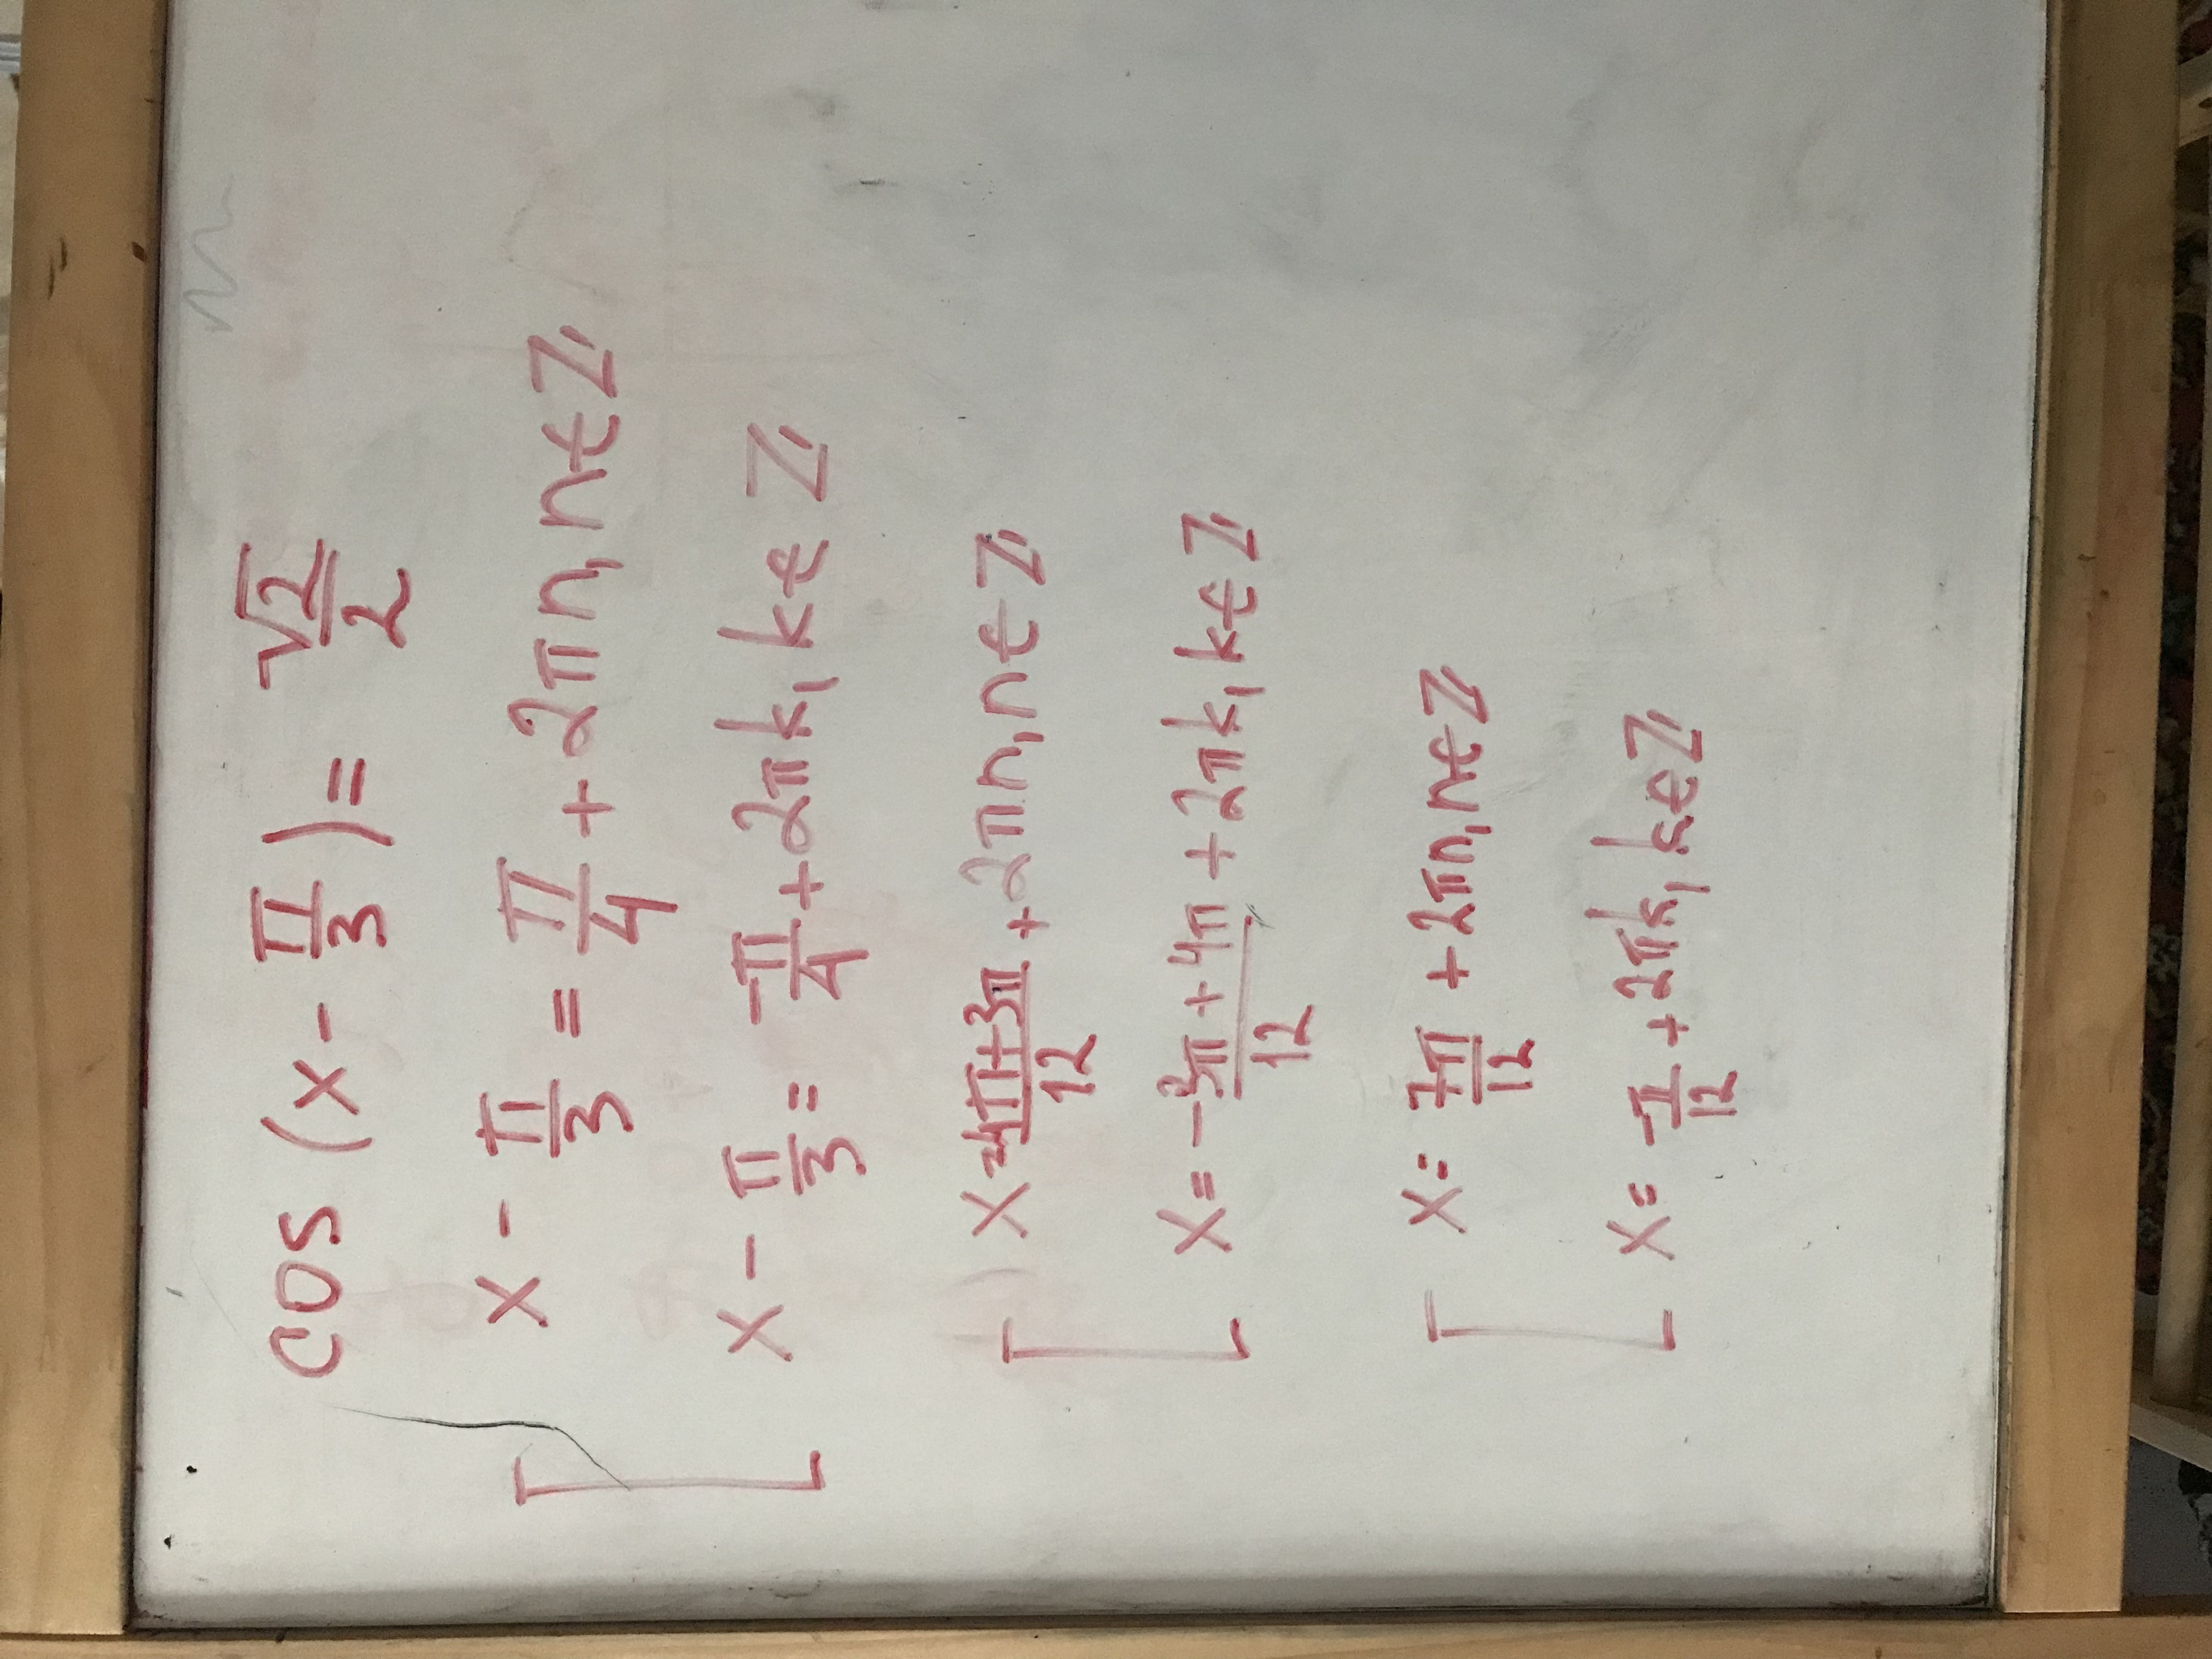 cos (x - π/3) = √2/2
x - π/3 = π/4 + 2πn, n∈Z
x - π/3 = -π/4 + 2πk, k∈Z
x = 4π+3π/12 + 2πn, n∈Z
x = -3π+4π/12 + 2πk, k∈Z
x = 7π/12 + 2πn, n∈Z
x = -π/12 + 2πk, k∈Z